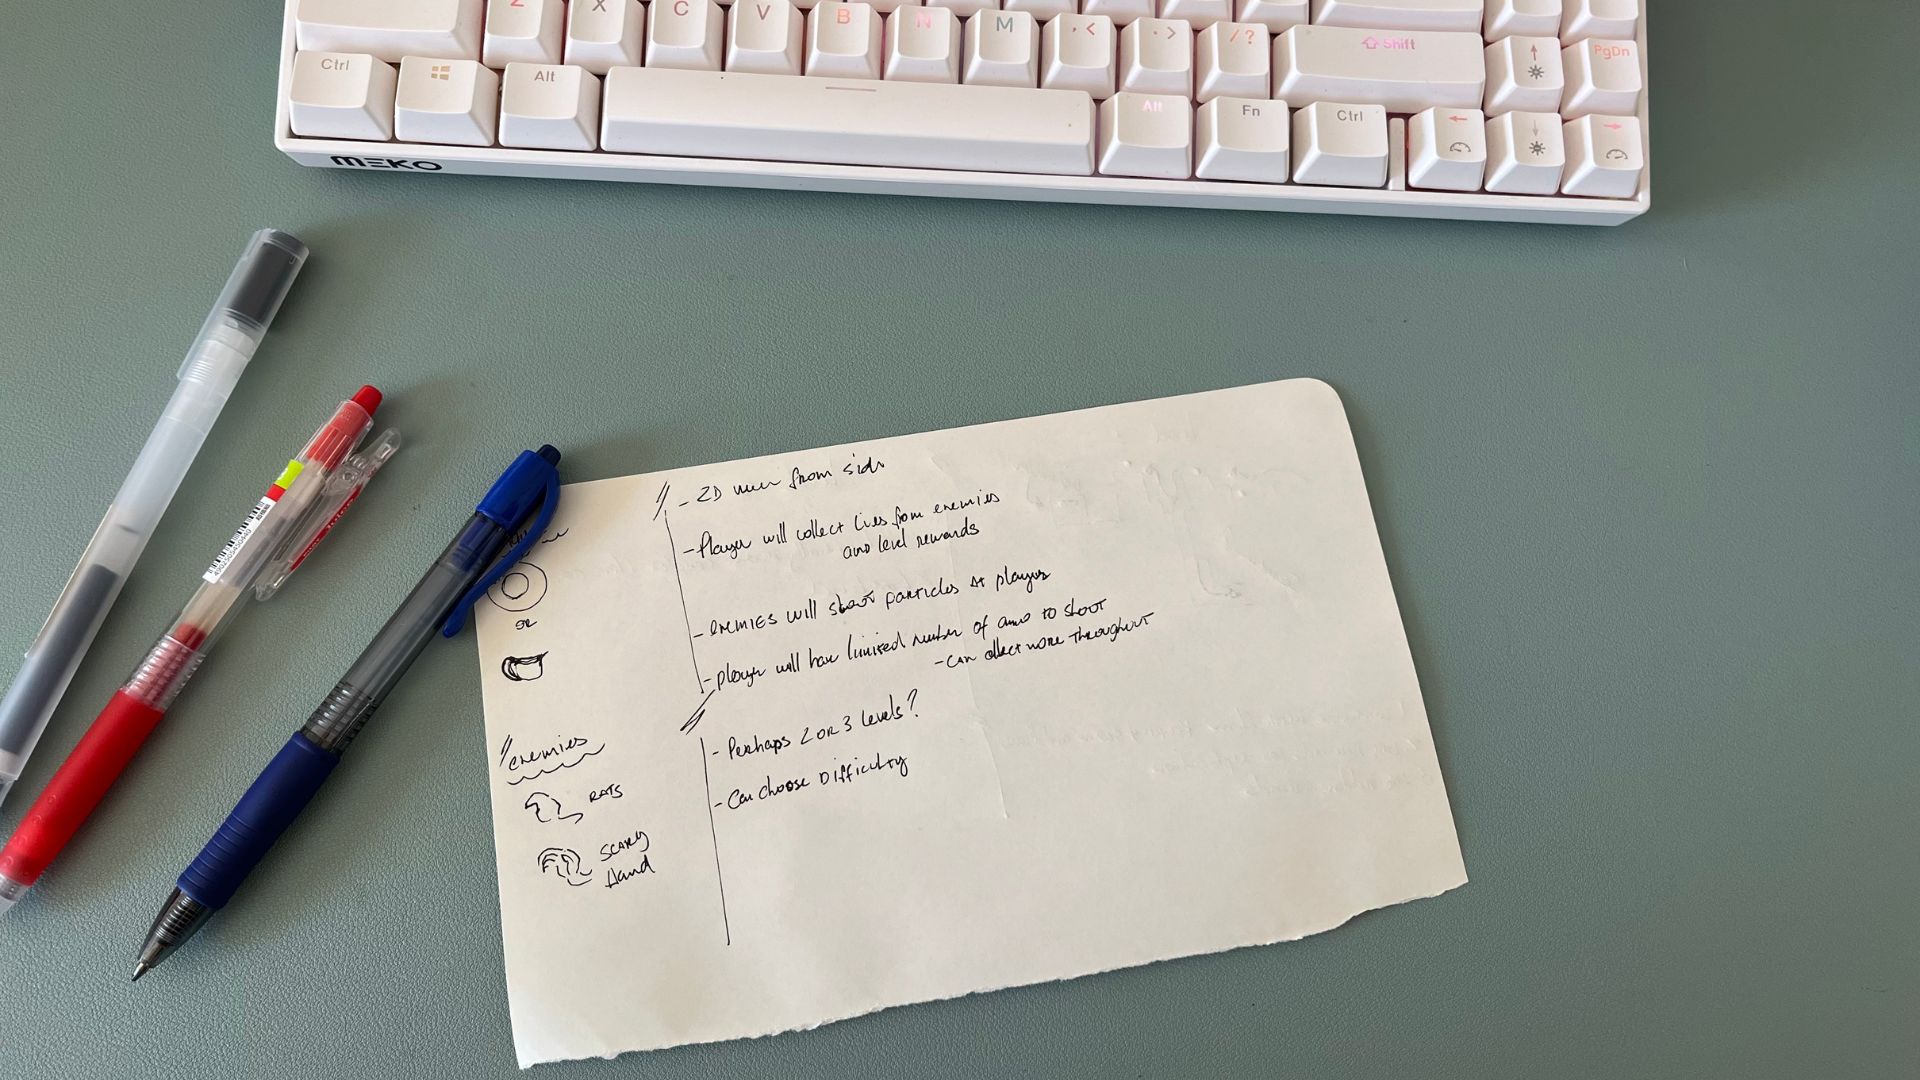 Z
X
C
V
B
N
M
, <
. >
/ ?
Shift
PgDn
Ctrl
Alt
Alt
Fn
Ctrl
MEKO
- 2D view from side
- Player will collect lives from enemies
and level rewards
- enemies will shoot particles at player
- player will have limited number of amo to shoot
- can collect more throughout
- Perhaps 2 or 3 levels?
- Can choose Difficulty
OR
enemies
RATS
SCARY
Hand